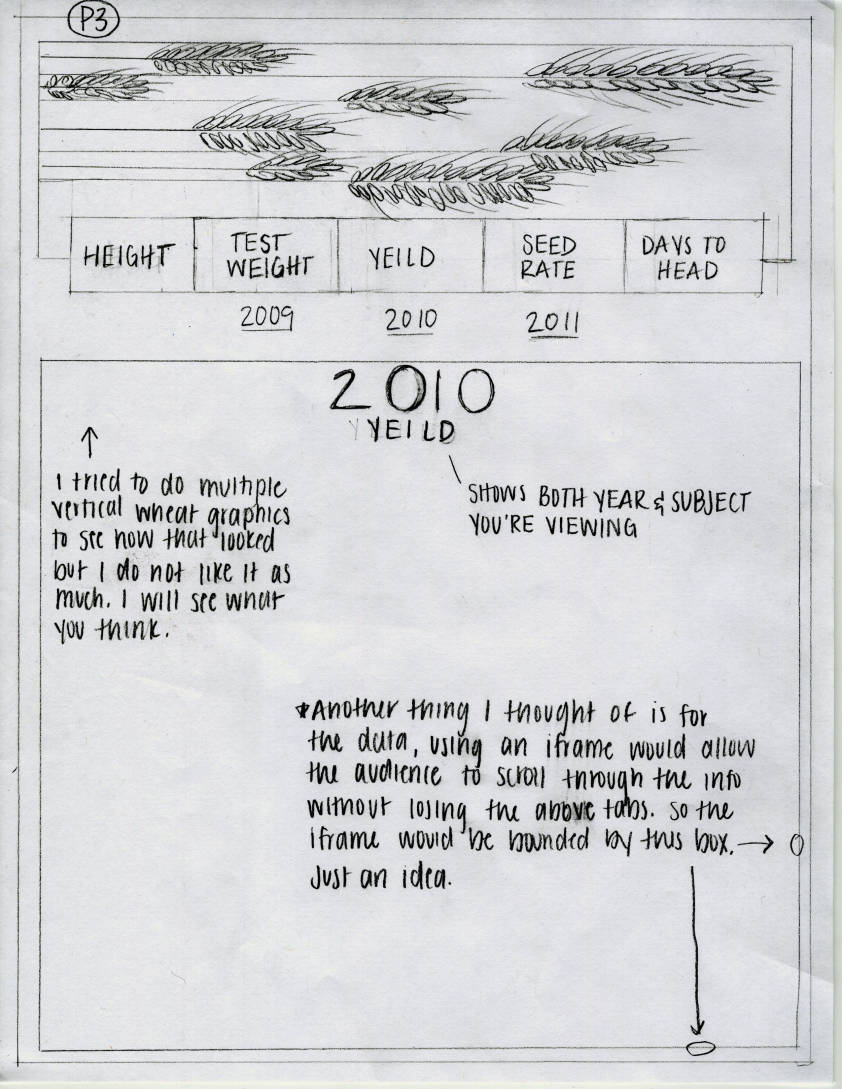 P3
HEIGHT
TEST
WEIGHT
YEILD
SEED
RATE
DAYS TO
HEAD
2009
2010
2011
2010
YEILD
SHOWS BOTH YEAR & SUBJECT
YOU'RE VIEWING
I tried to do multiple
vertical wheat graphics
to see how that looked
but I do not like it as
much. I will see what
you think.
*Another thing I thought of is for
the data, using an iframe would allow
the audience to scroll through the info
without losing the above tabs. So the
iframe would be bounded by this box.
Just an idea.